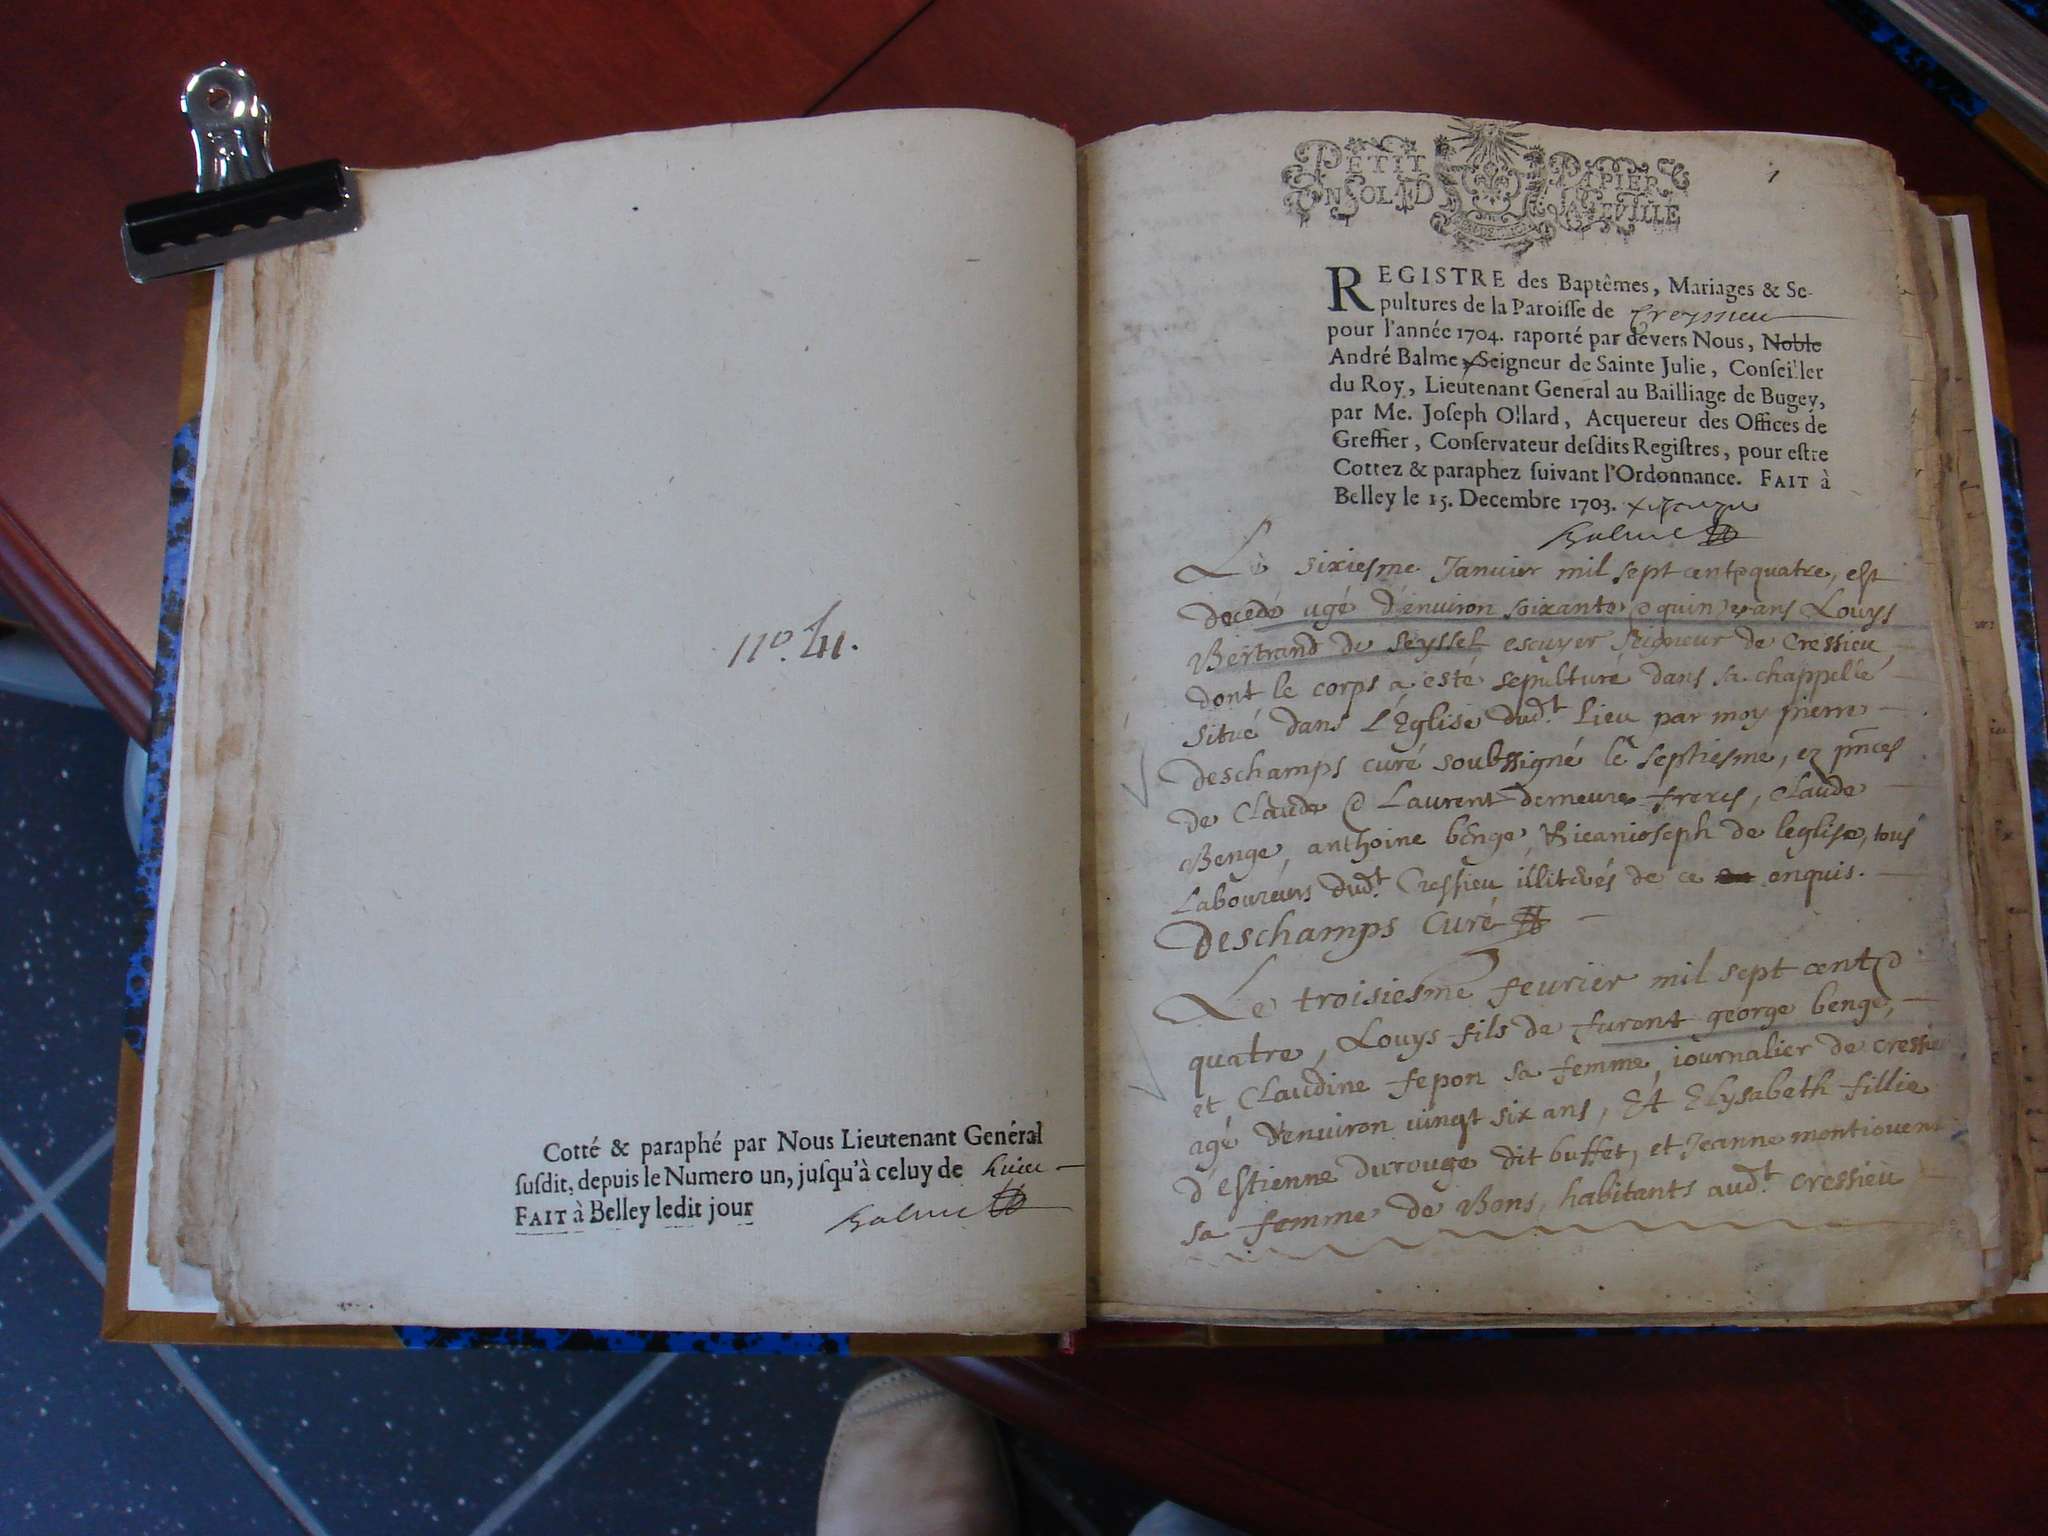 n.º 41.
Cotté & paraphé par Nous Lieutenant Genéral
suſdit, depuis le Numero un, juſqu'à celuy de huict
FAIT à Belley ledit jour
Balme
PETIT PAPIER
UN SOL
1
REGISTRE des Baptêmes, Mariages & Se-
pultures de la Paroiſſe de Creyssieu
pour l'année 1704. raporté par devers Nous, Noble
André Balme Seigneur de Sainte Julie, Conſeiller
du Roy, Lieutenant General au Bailliage de Bugey,
par Me. Joſeph Ollard, Acquereur des Offices de
Greffier, Conſervateur deſdits Regiſtres, pour eſtre
Cottez & paraphez ſuivant l'Ordonnance. FAIT à
Belley le 15. Decembre 1703.
Balme
Le sixiesme Januier mil sept cent & quatre, est
decedé agé d'enuiron soixante & quinze ans Louys
Bertrand de Seyssel escuyer seigneur de Cressieu,
dont le corps a esté sepulturé dans sa chappelle
situé dans L'Eglise dud.t lieu par moy pierre
deschamps curé soubssigné le septiesme, ez pnces
de Claude & Laurent demeure freres, Claude
Benge, anthoine benge, & jeanjoseph de leglise, tous
Laboureurs dud.t Cressieu illiterés de ce enquis.
Deschamps Curé
Le troisiesme feurier mil sept cent &
quatre, Louys fils de furent george benge,
et Claudine fepon sa femme, journalier de cressieu
agé d'enuiron vingt six ans, Et Elysabeth fillie
d'Estienne durouge dit buffet, et Jeanne
sa femme de Bons, habitants aud.t cressieu